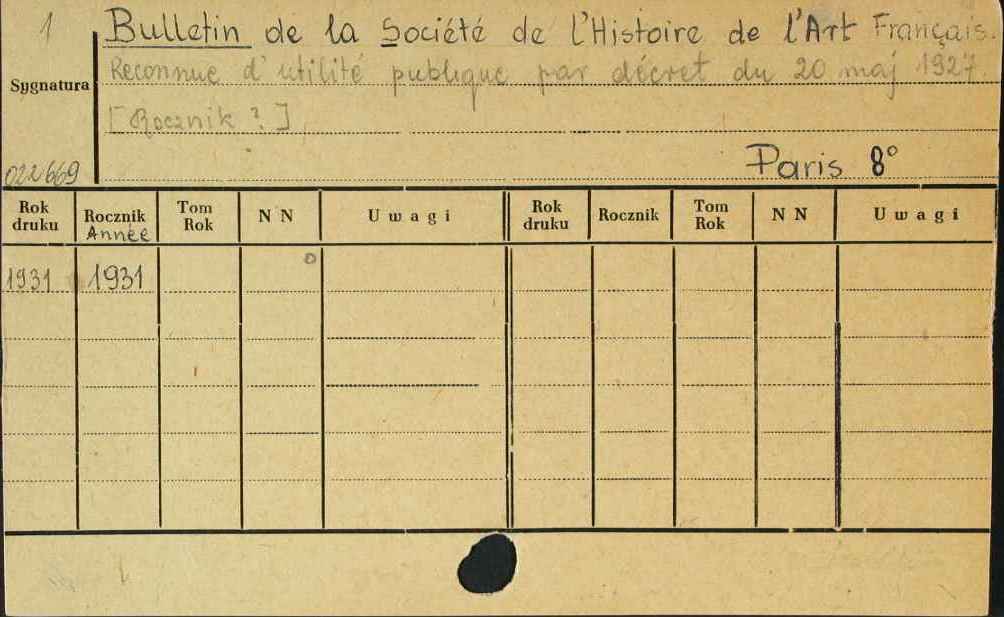 1 Bulletin de la Société de l'Histoire de l'Art Français.
Reconnue d'utilité publique par décret du 20 maj 1927
Sygnatura
[Rocznik ?]
022669
Paris 8°
Rok druku Rocznik Année Tom Rok N N Uwagi Rok druku Rocznik Tom Rok N N Uwagi
1931 1931